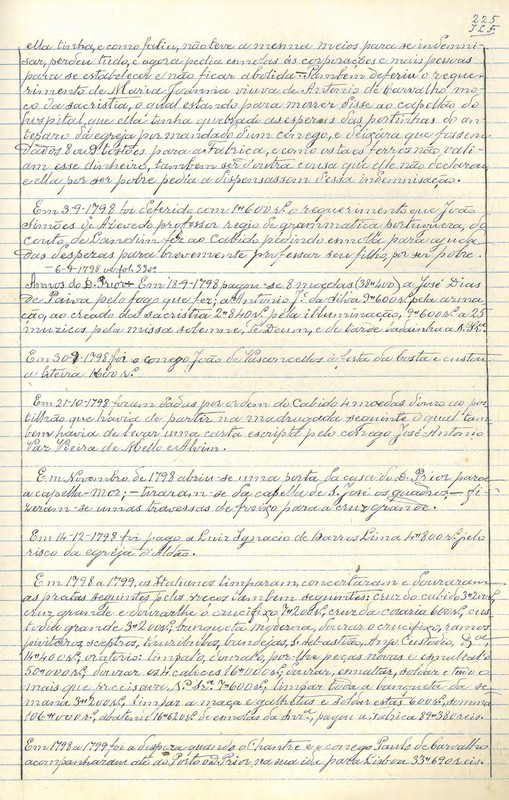 225
ella tinha, e como faliu, não teve a mesma meios para se indemni-
sar, perdeu tudo, e agora pedia esmolas ás corporações e mais pessoas
para se estabelecer e não ficar abatida. Tambem deferiu o reque-
rimento de Maria Joanna viuva de Antonio de Carvalho mo-
ço da sacristia, o qual estando para morrer disse ao capellão do
hospital, que ella tinha quebrado as esperas das portinhas do an-
teparo da egreja por mandado d'um conego, e deixára que fossem
dados 8 ou 9 tostões para a Fabrica, e como os taes ferros não vali-
am esse dinheiro, tambem ser d'outra cousa que elle não declarou
e ella, por ser pobre pedia a dispensassem d'essa indemnisação.
Em 3-9-1798 foi deferido com 1#600 rs. o requerimento que João
Simões de Azevedo professor regio de grammatica portugueza, do
couto de Landim fez ao Cabido pedindo esmola para ajuda
das despezas para brevemente professar seu filho, por ser pobre.
- 6-9-1798 vid. fol. 33v.
Annos do D. Prior Em 18-9-1798 pagou-se 8 moedas (38#400) a José Dias
de Paiva pelo fogo que fez; a Antonio J. da Silva 9#600 rs. pela arma-
ção, ao creado da sacristia 2#840 rs. pela illuminação, 9#600 rs. a 25
muzicos pela missa solemne, Te Deum, e de tarde ladainha a N. Srª.
Em 30-9-1798 foi o conego João de Vasconcellos á festa da Costa e custou
a liteira 1#600 rs.
Em 21-10-1798 foram dadas por ordem do Cabido 4 moedas d'ouro ao pos-
tilhão que havia de partir na madrugada seguinte o qual tam-
bem havia de levar uma carta escripta pelo conego José Antonio
Vaz Vieira de Mello e Alvim.
Em Novembro de 1798 abriu-se uma porta da casa do D. Prior para
a capella-mór; - tiraram-se da capella de S. José os quadros, - fi-
zeram-se umas travessas de froixo para a cruz grande.
Em 14-12-1798 foi pago a Luiz Ignacio de Barros Lima 4#800 rs. pelo
risco da egreja d'Aldão.
Em 1798 a 1799, os Italianos limparam, concertaram e douraram
as pratas seguintes pelos preços tambem seguintes: cruz do cabido 3#200 rs,
cruz grande e dourar-lhe o crucifixo 7#200 rs, cruz da coraria 600 rs, cus-
todia grande 3#200 rs, banqueta moderna, dourar o crucifixo, ramos,
piviteiros, sceptros, thuribulos, bandejas, S. Sebastião, Anjo Custodio, &ª,
14#400 rs; oratorio: limpal-o, doural-o, por-lhe peças novas e esmaltal-o
50#000 rs; dourar os 4 calices 16#000 rs; dourar, esmaltar, soldar e tudo o
mais que precisava N. Srª. 7#600 rs; limpar toda a banqueta da se-
mana 3#200 rs, limpar a maça e galhetas e soldar estas 600 rs, somma
106#000 rs, abateno 16#620 rs de esmolas da Srª., pagou a Fabrica 89#380 reis.
Em 1798 a 1799 foi a despeza quando o Chantre e o conego Paulo de Carvalho
acompanharam até ao Porto o D. Prior na sua ida para Lisboa 33#690 reis.